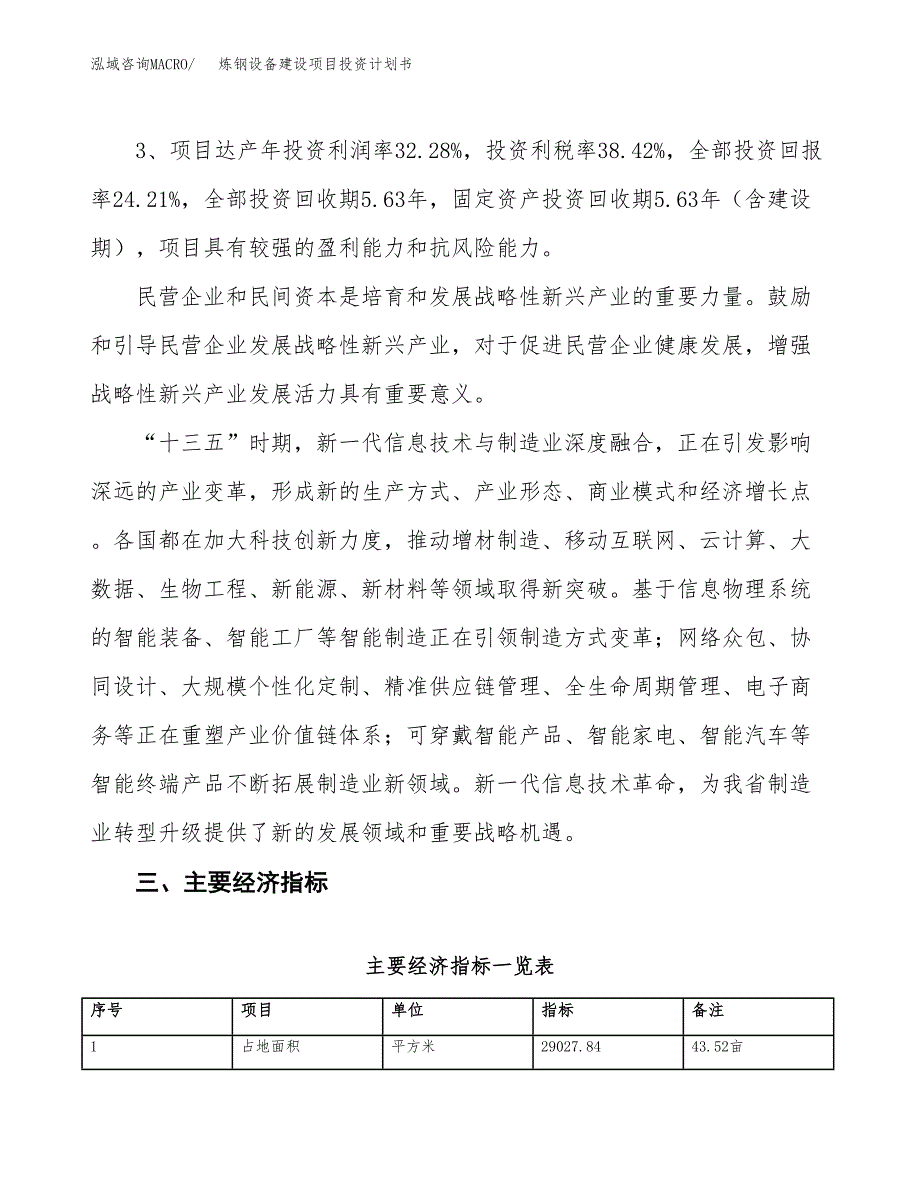 泓域咨询MACRO/ 炼钢设备建设项目投资计划书
3、项目达产年投资利润率32.28%，投资利税率38.42%，全部投资回报
率24.21%，全部投资回收期5.63年，固定资产投资回收期5.63年（含建设
期），项目具有较强的盈利能力和抗风险能力。
民营企业和民间资本是培育和发展战略性新兴产业的重要力量。鼓励
和引导民营企业发展战略性新兴产业，对于促进民营企业健康发展，增强
战略性新兴产业发展活力具有重要意义。
“十三五”时期，新一代信息技术与制造业深度融合，正在引发影响
深远的产业变革，形成新的生产方式、产业形态、商业模式和经济增长点
。各国都在加大科技创新力度，推动增材制造、移动互联网、云计算、大
数据、生物工程、新能源、新材料等领域取得新突破。基于信息物理系统
的智能装备、智能工厂等智能制造正在引领制造方式变革；网络众包、协
同设计、大规模个性化定制、精准供应链管理、全生命周期管理、电子商
务等正在重塑产业价值链体系；可穿戴智能产品、智能家电、智能汽车等
智能终端产品不断拓展制造业新领域。新一代信息技术革命，为我省制造
业转型升级提供了新的发展领域和重要战略机遇。
三、主要经济指标
主要经济指标一览表
序号 项目 单位 指标 备注
1 占地面积 平方米 29027.84 43.52亩